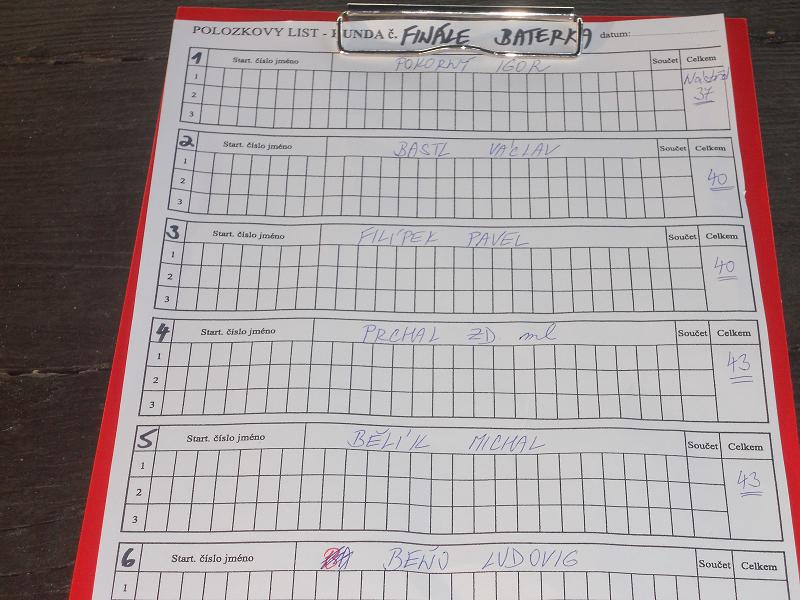 POLOZKOVY LIST - RUNDA č. FINÁLE BATERKA datum:
1 Start. číslo jméno POKORNÝ IGOR Součet Celkem
1
2 37
3
2 Start. číslo jméno BASTL VÁCLAV Součet Celkem
1
2 40
3
3 Start. číslo jméno FILÍPEK PAVEL Součet Celkem
1
2 40
3
4 Start. číslo jméno PRCHAL ZD. ml Součet Celkem
1 43
2
3
5 Start. číslo jméno BĚLÍK MICHAL Součet Celkem
1
2 43
3
6 Start. číslo jméno BEŇO LUDOVIG Součet Celkem
1